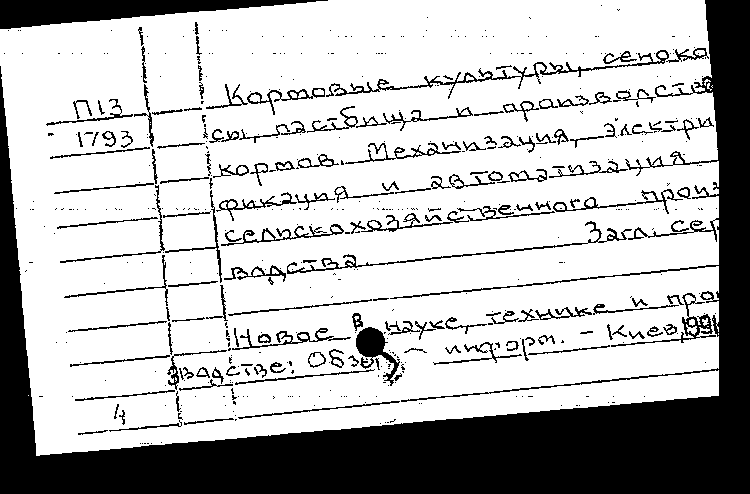 П13
1793
Кормовые культуры, сеноко
сы, пастбища и производство
кормов. Механизация, электри
фикация и автоматизация
сельскохозяйственного произ
водства. Загл. сер
Новое в науке, технике и про
изводстве: Обзор информ. – Киев, 1991
4